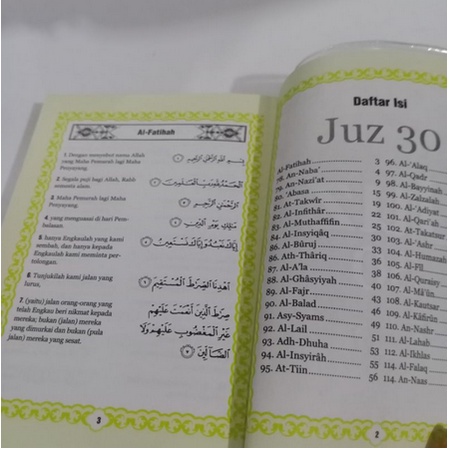 Al-Fatihah
1. Dengan menyebut nama Allah
yang Maha Pemurah lagi Maha
Penyayang.
بِسْمِ اللّٰهِ الرَّحْمٰنِ الرَّحِيْمِ ١
2. Segala puji bagi Allah, Rabb
semesta alam.
الْحَمْدُ لِلّٰهِ رَبِّ الْعَالَمِيْنَ ٢
3. Maha Pemurah lagi Maha
Penyayang.
الرَّحْمٰنِ الرَّحِيْمِ ٣
4. yang menguasai di hari Pem-
balasan.
مَالِكِ يَوْمِ الدِّيْنِ ٤
5. hanya Engkaulah yang kami
sembah, dan hanya kepada
Engkaulah kami meminta per-
tolongan.
إِيَّاكَ نَعْبُدُ وَإِيَّاكَ نَسْتَعِيْنُ ٥
6. Tunjukilah kami jalan yang
lurus,
اهْدِنَا الصِّرَاطَ الْمُسْتَقِيْمَ ٦
7. (yaitu) jalan orang-orang yang
telah Engkau beri nikmat kepada
mereka; bukan (jalan) mereka
yang dimurkai dan bukan (pula
jalan) mereka yang sesat.
صِرَاطَ الَّذِيْنَ أَنْعَمْتَ عَلَيْهِمْ
غَيْرِ الْمَغْضُوْبِ عَلَيْهِمْ وَلَا
الضَّالِّيْنَ ٧
3
Daftar Isi
Juz 30
Al-Fatihah 3
78. An-Naba' 4
79. An-Nazi'at 8
80. 'Abasa 15
81. At-Takwir 19
82. Al-Infithâr 22
83. Al-Muthaffifin 25
84. Al-Insyiqâq 30
85. Al-Burûj 33
86. Ath-Thâriq 36
87. Al-A'la 38
88. Al-Ghâsyiyah
89. Al-Fajr
90. Al-Balad
91. Asy-Syams
92. Al-Lail
93. Adh-Dhuha
94. Al-Insyirâh
95. At-Tiin 56
96. Al-'Alaq
97. Al-Qadr
98. Al-Bayyinah
99. Al-Zalzalah
100. Al-'Adiyat
101. Al-Qari'ah
102. At-Takatsur
103. Al-'Ashr
104. Al-Humazah
105. Al-Fîl
106. Al-Quraisy
107. Al-Mâ'ûn
108. Al-Kautsar
109. Al-Kâfirûn
110. An-Nashr
111. Al-Lahab
112. Al-Ikhlas
113. Al-Falaq
114. An-Naas
2